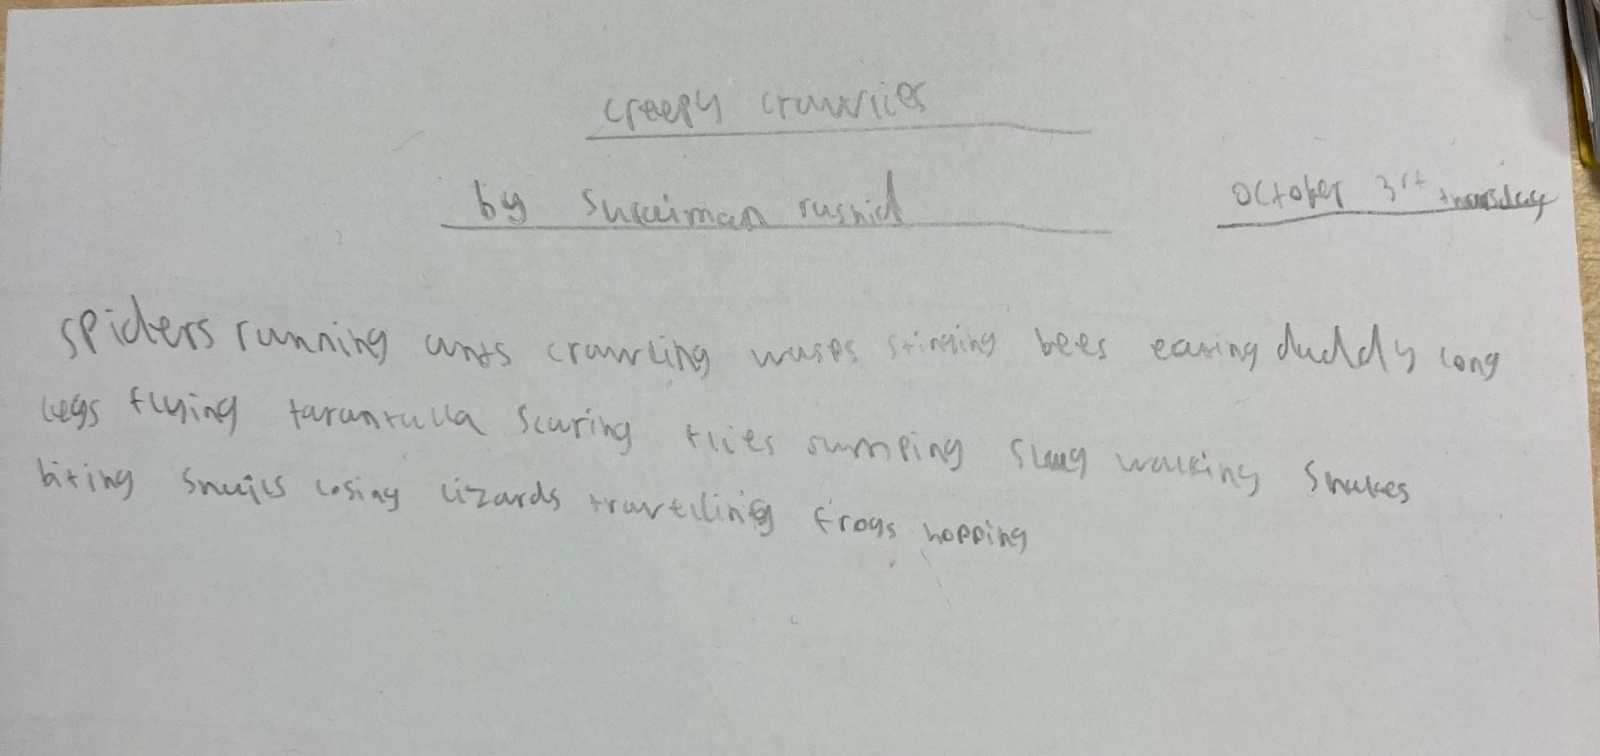 creepy crawlies
by Suleiman rashid
October 3rd thursday
spiders running ants crawling wasps stinging bees eating daddy long
legs flying tarantulla scaring flies jumping slug walking snakes
biting snails losing lizards travelling frogs hopping